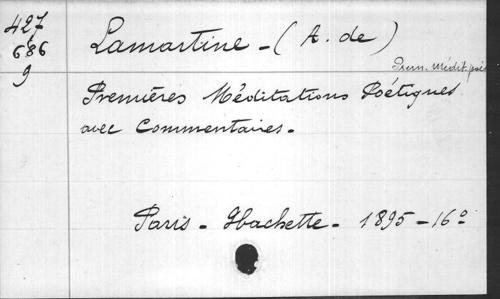 427
686
9
Lamartine - (A. de)
Prem. médit. poé
Premières Méditations Poétiques
avec Commentaires.
Paris - Hachette - 1895 - 16º